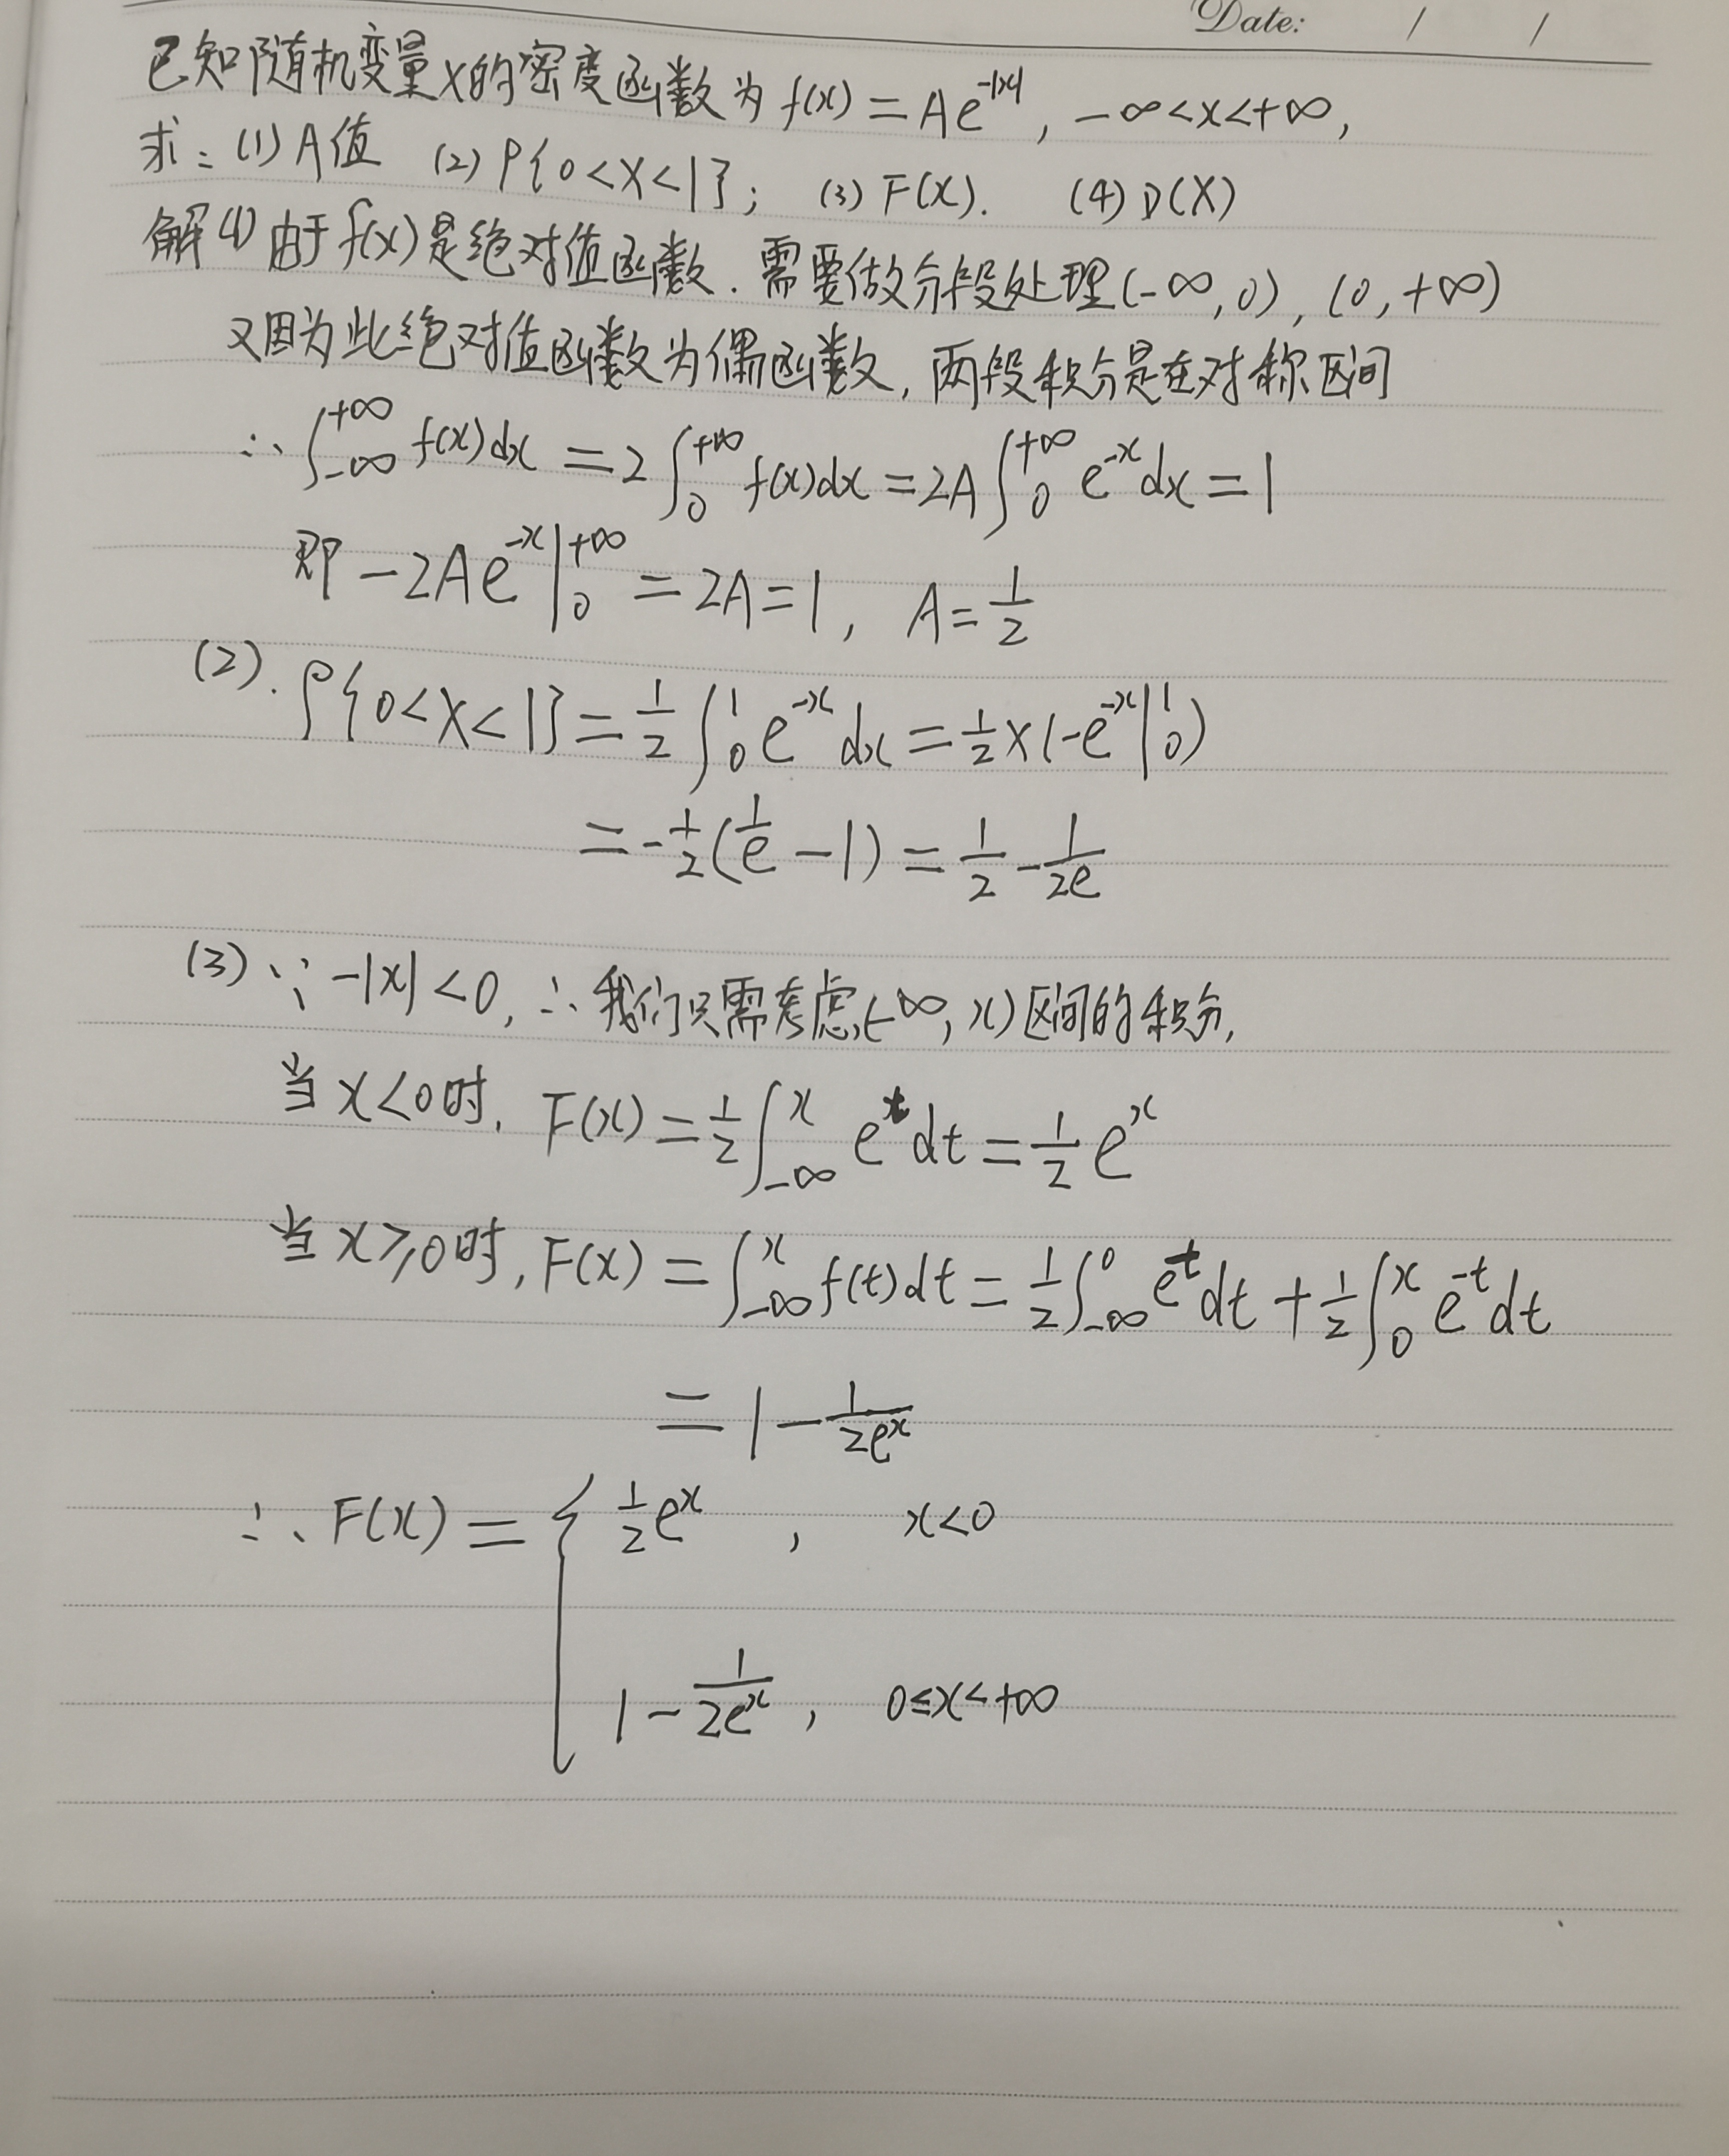 Date: / /
已知随机变量X的密度函数为 f(x) = Ae^{-|x|}, -∞<x<+∞,
求: (1) A值 (2) P{0<X<1}; (3) F(x). (4) D(X)
解(1) 由于f(x)是绝对值函数. 需要做分段处理(-∞,0), (0,+∞)
又因为此绝对值函数为偶函数, 两段积分是在对称区间
∴ ∫_{-∞}^{+∞} f(x)dx = 2∫_{0}^{+∞} f(x)dx = 2A∫_{0}^{+∞} e^{-x}dx = 1
即 -2Ae^{-x}|_{0}^{+∞} = 2A = 1, A = 1/2
(2). P{0<X<1} = 1/2 ∫_{0}^{1} e^{-x}dx = 1/2 × (-e^{-x}|_{0}^{1})
= -1/2(1/e - 1) = 1/2 - 1/2e
(3) ∵ -|x|<0, ∴ 我们只需考虑(-∞, x)区间的积分,
当 x<0时, F(x) = 1/2 ∫_{-∞}^{x} e^{t}dt = 1/2 e^{x}
当 x≥0时, F(x) = ∫_{-∞}^{x} f(t)dt = 1/2 ∫_{-∞}^{0} e^{t}dt + 1/2 ∫_{0}^{x} e^{-t}dt
= 1 - 1/2e^{x}
∴ F(x) = { 1/2 e^{x} , x<0
1 - 1/2e^{x} , 0≤x<+∞